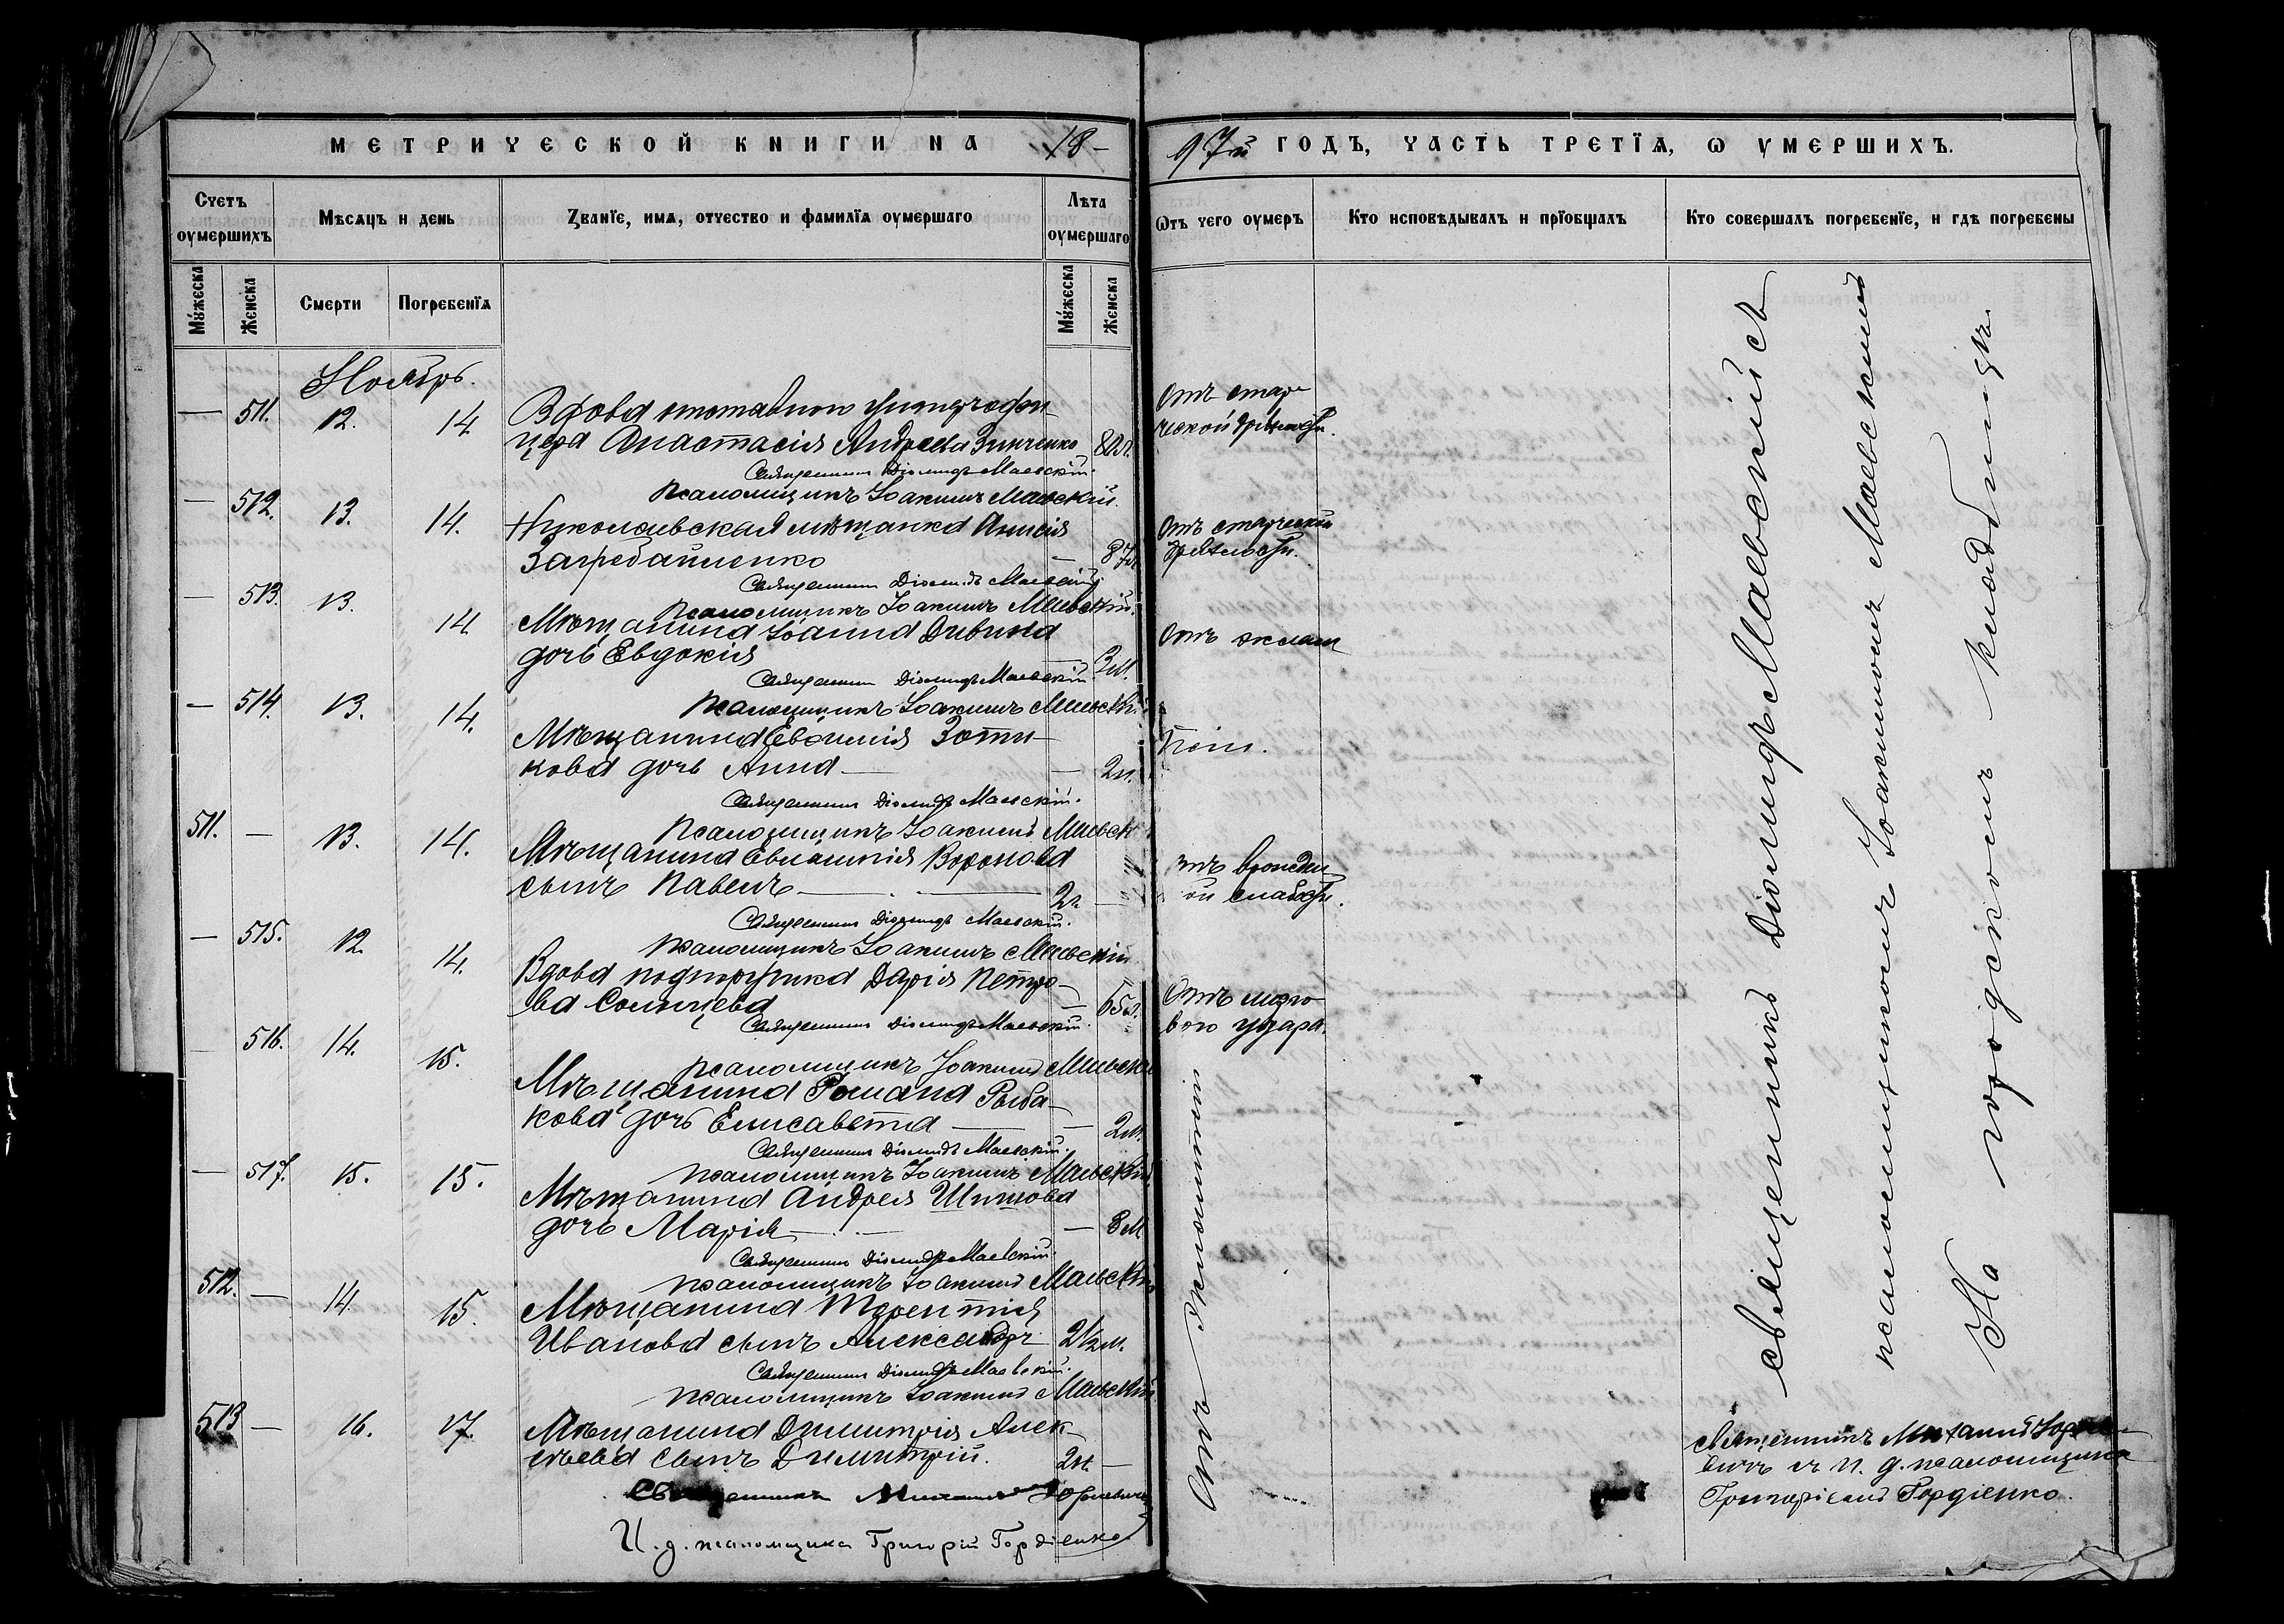 МЕТРИЧЕСКОЙ КНИГИ НА 18-
97й ГОДЪ, ЧАСТЬ ТРЕТІѦ, Ѡ УМЕРШИХЪ.
Счетъ оумершихъ
Мѣсѧцъ и день
Званїе, имѧ, отчество и фамилїѧ оумершаго
Лѣта оумершаго
Ѿтъ чего оумеръ
Кто исповѣдывалъ и прїобщалъ
Кто совершалъ погребенїе, и гдѣ погребены
Мужеска
Женска
Смерти
Погребенїѧ
Мужеска
Женска
Ноябрь.
— 511. 12. 14
Вдова
цера Анастасія Андреева Зинченко 80л.
Отъ стар-
ческой дряхлости.
Священникъ Діомидъ Маевскій.
Псаломщикъ Іоакимъ Маевскій.
— 512. 13. 14.
Николаевская мѣщанка Анисія
Загребайленко — 87л.
Отъ старческой
дряхлости.
Священникъ Діомидъ Маевскій.
Псаломщикъ Іоакимъ Маевскій.
— 513. 13. 14
Мѣщанина Іоанна Дивина
дочь Евдокія — 3м.
Отъ эклам
Священникъ Діомидъ Маевскій.
Псаломщикъ Іоакимъ Маевскій.
— 514. 13. 14.
Мѣщанина Евѳимія Зоти-
кова дочь Анна — — 2м.
псіи.
Священникъ Діомидъ Маевскій.
Псаломщикъ Іоакимъ Маевск
511. — 13. 14.
Мѣщанина Евлампія Воронова
сынъ Павелъ — 2 —
отъ врожден
ой слабости.
Священникъ Діомидъ Маевскій.
Псаломщикъ Іоакимъ Маевскій
— 515. 12. 14.
Вдова подпоручика Дарія Петро-
ва Солнцева — 65л.
Отъ мозго
вого удара.
Священникъ Діомидъ Маевскій.
Псаломщикъ Іоакимъ Маевскій
516. 14. 15.
Мѣщанина Романа Рыба-
кова дочь Елисавета — — 2м.
Священникъ Діомидъ Маевскій.
Псаломщикъ Іоакимъ Маевскій
— 517. 15. 15.
Мѣщанина Андрея Шишова
дочь Марія — — 8м
Священникъ Діомидъ Маевскій.
Псаломщикъ Іоакимъ Маевскій
512. — 14. 15.
Мѣщанина Терентія
Иванова сынъ Александръ 2½м.
Священникъ Діомидъ Маевскій.
Псаломщикъ Іоакимъ Маевскій
513 — 16. 17.
Мѣщанина Димитрія Алек-
сѣева сынъ Димитрій. 2м. —
Священникъ Михаилъ
И. д. псаломщика Григорій Гордіенко
Отъ эклампсіи
Священникъ Діомидъ Маевскій съ
псаломщикомъ Іоакимомъ Маевскимъ
На городскомъ кладбищѣ.
Священникъ Михаилъ
вичъ съ и. д. псаломщика
Григоріемъ Гордіенко.